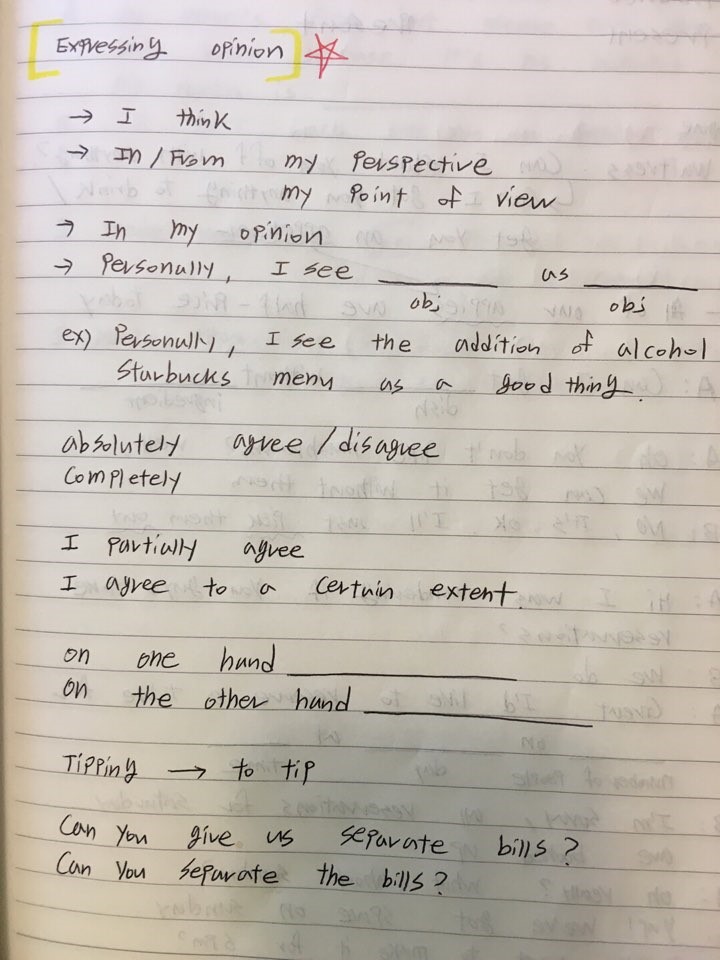 [Expressing opinion] ☆
→ I think
→ In/From my perspective
my point of view
→ In my opinion
→ Personally, I see ________ as ________
obj obj
ex) Personally, I see the addition of alcohol
Starbucks menu as a good thing.
absolutely agree / disagree
completely
I partially agree
I agree to a certain extent.
on one hand ________
on the other hand ________
Tipping → to tip
Can you give us separate bills?
Can you separate the bills?